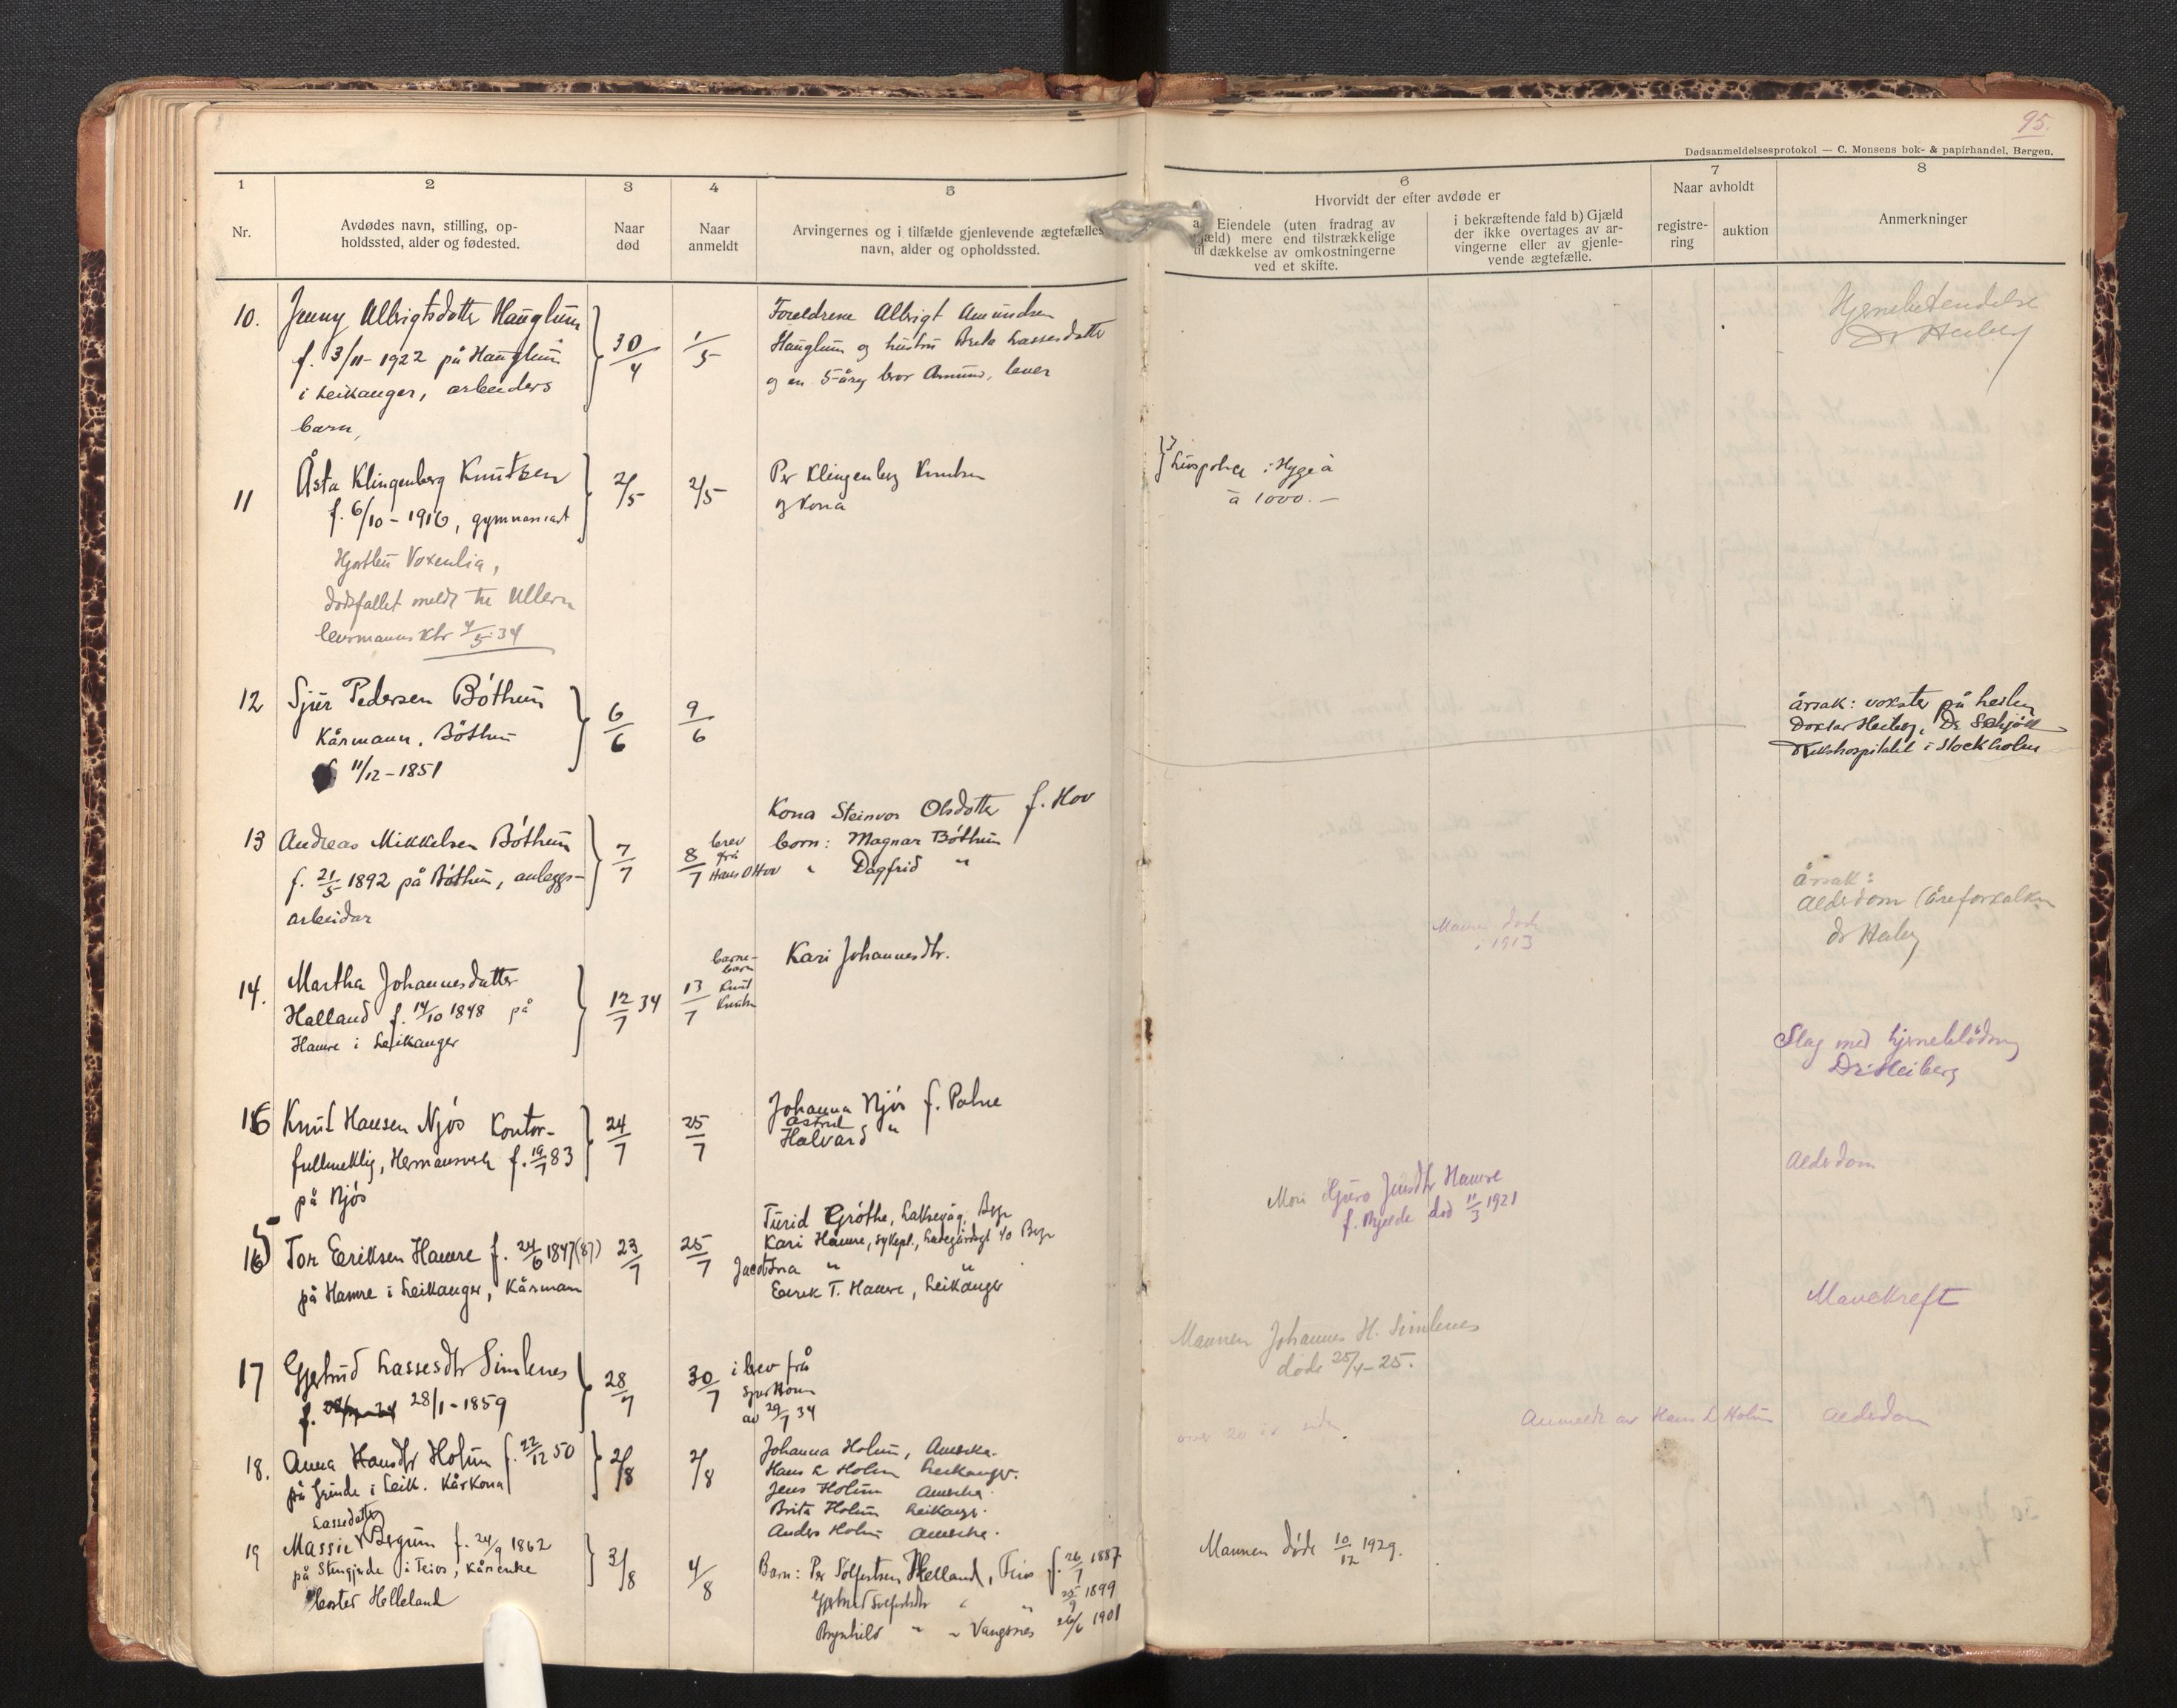 95.
Dødsanmeldelsesprotokol — C. Monsens bok- & papirhandel, Bergen.
1
2
3
4
5
6
7
8
Nr.
Avdødes navn, stilling, op-
holdssted, alder og fødested.
Naar
død
Naar
anmeldt
Arvingernes og i tilfælde gjenlevende ægtefælles
navn, alder og opholdssted.
Hvorvidt der efter avdøde er
a) Eiendele (uten fradrag av
gjæld) mere end tilstrækkelige
til dækkelse av omkostningerne
ved et skifte.
i bekræftende fald b) Gjæld
der ikke overtages av ar-
vingerne eller av gjenle-
vende ægtefælle.
Naar avholdt
registre-
ring
auktion
Anmerkninger
10.
Jenny Albrigtsdotter Hauglum
f. 3/11-1922 på Hauglum
i Leikanger, arbeiders
barn,
30/4
1/5
Foreldrene Albrigt Amundsen
Hauglum og hustru Brita Lassesdotter
og en 5-årig bror Amund, lever
Hjernebetendelse
Dr Heiberg
11
Åsta Klingenberg Knutsen
f. 6/10-1916, gymnasiast
Voxenlia,
dødsfallet meldt til Ullern
lensmannsktr 4/5-34
2/5
2/5
Per Klingenberg Knutsen
og kona
Livspolice i Hygea
à 1000.—
12
Sjur Pedersen Bòthun
Kårmann, Bòthun
11/12-1851
6/6
9/6
årsak:
Doktor Heiberg, Dr
Rikshospitalet i Stockholm
13
Andreas Mikkelsen Bòthun
f. 21/5 1892 på Bòthun, anleggs-
arbeidar
7/7
8/7
brev
frå
Hans O Hov
Kona Steinvor Olsdotter f. Hov
born: Magnar Bòthun
" Dagfrid "
årsak:
Alderdom (åreforkalkn
dr Heiberg
14.
Martha Johannesdatter
Halland f. 14/10 1848 på
Hamre i Leikanger
12/7 34
13/7
barne-
barn
Knut
Knutsen
Kari Johannesdtr.
Mannen døde
i 1913
Slag med hjerneblødning
Dr. Heiberg
16
Knut Hansen Njòs Kontor-
fullmektig, Hermansverk f. 19/7 83
på Njòs
24/7
25/7
Johanna Njòs f. Palne
Astrid
Halvard "
Alderdom
15
Tor Eeriksen Hamre f. 24/6 1847 (87)
på Hamre i Leikanger, Kårmann
23/7
25/7
Turid Gròthe, Laksevåg, Bgn
Kari Hamre, sykepl., Ladegårdsgt 40 Bgn
Jacobina " "
Eerik T. Hamre, Leikanger
Mor: Guro Jensdtr Hamre
f. Njelde død 11/3 1921
Mavekreft
17
Gjertrud Lassesdtr Simlenes
f. 28/1-1859
28/7
30/7
i brev frå
av 29/7 34
Mannen Johannes H. Simlenes
døde 25/4-25.
18.
Anna Hansdtr Holum f. 22/12 50
på Grinde i Leik. Kårkona
2/8
2/8
Johanna Holum, Amerika.
Hans L Holum Leikanger.
Jens Holum Amerika.
Brita Holum Leikanger.
Anders Holum Amerika.
over 20 år siden
Anmeldt av Hans L Holum
Alderdom
19
Lassedatter
Massie Bergum f. 24/9 1862
på Stengjerde i Feios, Kårenke
Helleland
3/8
4/8
Barn: Per Sòlfestsen Helland, Feios f. 26/7 1887
Gjertrud Solfestdtr " " 25/9 1899
Brynhild " " Vangsnes 26/6 1901
Mannen døde 10/12 1929.